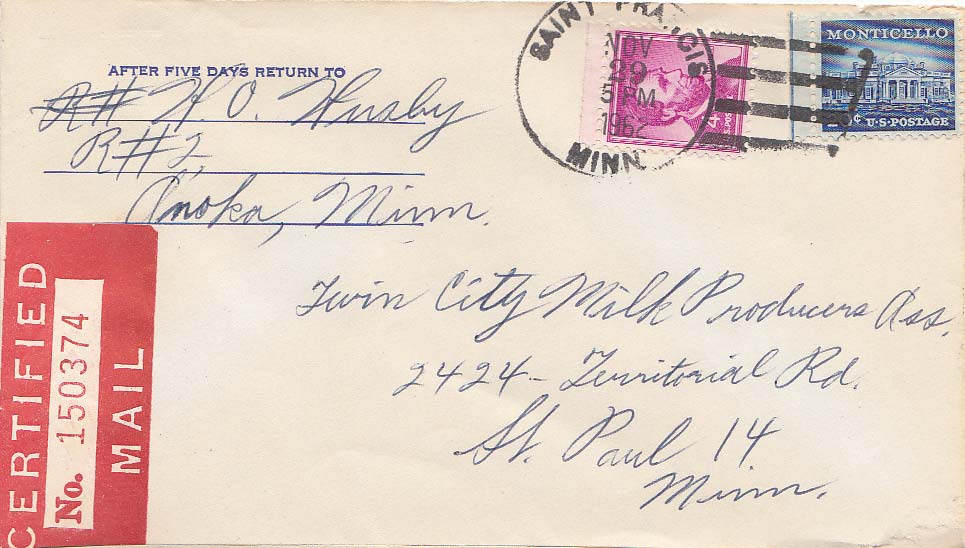 AFTER FIVE DAYS RETURN TO
R# H. O. Husby
R#2
Anoka, Minn.
SAINT FRANCIS
NOV
29
5 PM
1962
MINN.
4¢
MONTICELLO
20¢ U.S. POSTAGE
CERTIFIED
No. 150374
MAIL
Twin City Milk Producers Ass.
2424 - Territorial Rd.
St. Paul 14
Minn.